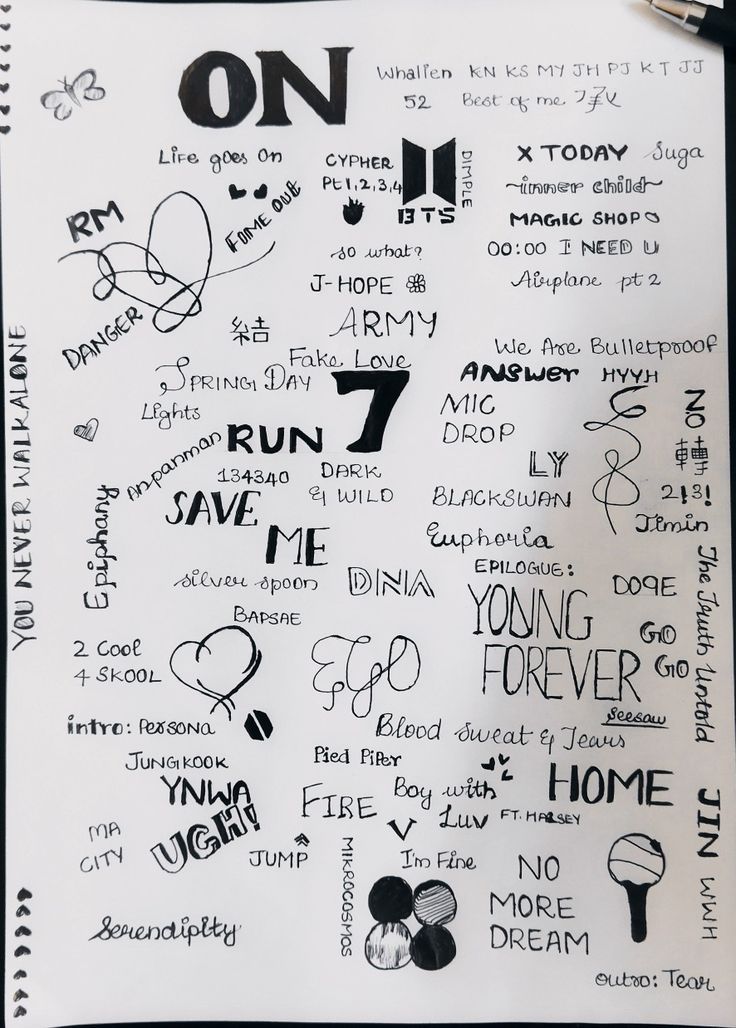 ON
Whalien KN KS MY JH PJ KT JJ
52 Best of me 承
Life goes On
CYPHER
PT 1, 2, 3, 4
DIMPLE
BTS
X TODAY Suga
~inner child~
MAGIC SHOP
00:00 I NEED U
Airplane pt 2
RM
FAME OUT
so what?
J-HOPE
ARMY
DANGER
結
Fake Love
SPRING DAY
7
We Are Bulletproof
ANSWER HYYH
Lights
RUN
MIC
DROP
NO
轉
2!3!
Jimin
LY
BLACKSWAN
Euphoria
Anpanman
134340
DARK
& WILD
SAVE
ME
YOU NEVER WALK ALONE
Epiphany
silver spoon
BAPSAE
DNA
EPILOGUE:
YOUNG
FOREVER
DOPE
GO
GO
The Truth Untold
2 Cool
4 SKOOL
EGO
seesaw
intro: Persona
Blood Sweat & Tears
JUNGKOOK
Pied Piper
YNWA
FIRE
Boy with
Luv FT. HALSEY
HOME
V
UGH!
MA
CITY
JUMP
MIKROCOSMOS
I'm Fine
NO
MORE
DREAM
JIN
WWH
Serendipity
outro: Tear